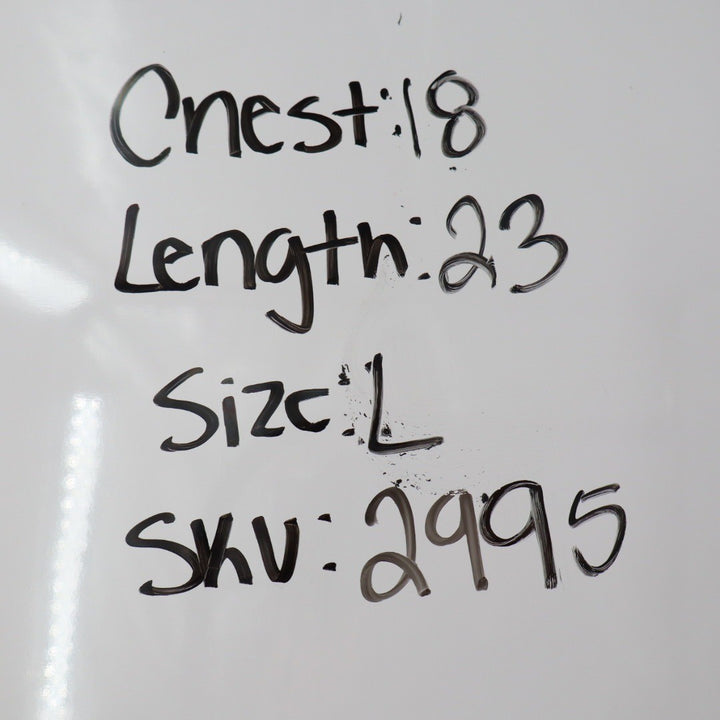 Chest:18
Length:23
Size:L
SKU:2995